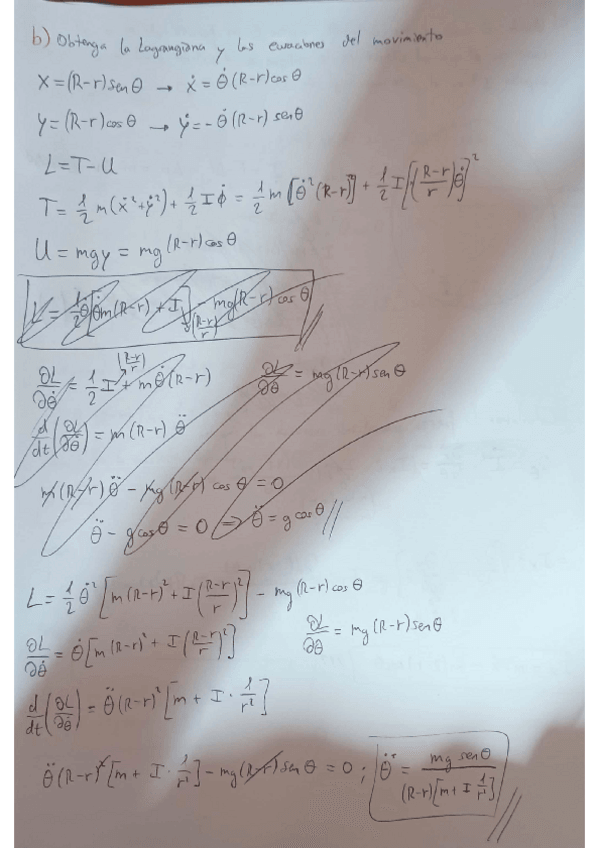 b) Obtenga la Lagrangiana y las ecuaciones del movimiento
X = (R-r) sen θ → ẋ = θ̇ (R-r) cos θ
y = (R-r) cos θ → ẏ = - θ̇ (R-r) sen θ
L = T - U
T = 1/2 m (ẋ² + ẏ²) + 1/2 I φ̇ = 1/2 m [θ̇² (R-r)²] + 1/2 I [(R-r/r) θ̇]²
U = mgy = mg (R-r) cos θ
L = 1/2 θ̇ [θ̇ m (R-r) + I] - mg (R-r) cos θ
(R-r/r)
∂L/∂θ̇ = 1/2 I (R-r/r) + m θ̇ (R-r) ∂L/∂θ = mg (R-r) sen θ
d/dt (∂L/∂θ̇) = m (R-r) θ̈
m (R-r) θ̈ - mg (R-r) cos θ = 0
θ̈ - g cos θ = 0 ⇒ θ̈ = g cos θ //
L = 1/2 θ̇² [m (R-r)² + I (R-r/r)²] - mg (R-r) cos θ
∂L/∂θ̇ = θ̇ [m (R-r)² + I (R-r/r)²] ∂L/∂θ = mg (R-r) sen θ
d/dt (∂L/∂θ̇) = θ̈ (R-r)² [m + I · 1/r²]
θ̈ (R-r)² [m + I · 1/r²] - mg (R-r) sen θ = 0 ; θ̈ = mg sen θ / (R-r) [m + I 1/r²] //